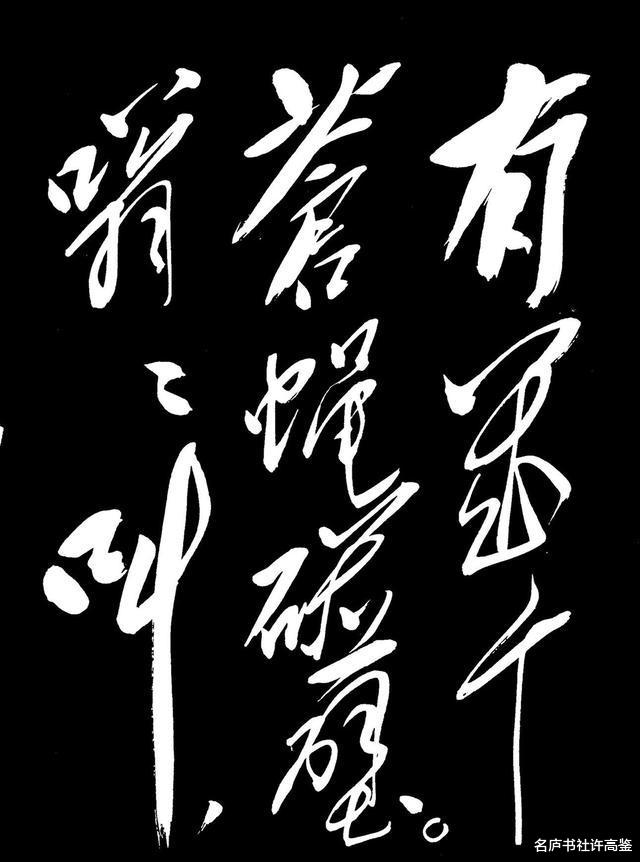 有幾个
蒼蝇碰壁。
嗡々叫，
名庐书社许高鉴